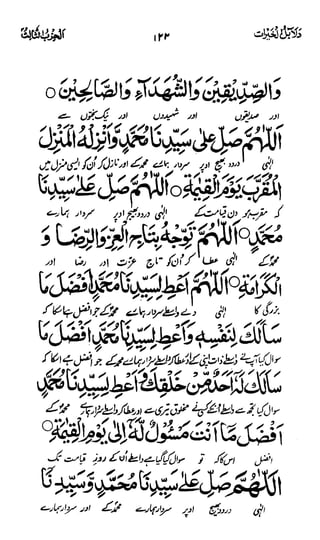 دلائل الخیرات ۱۲۳ الحزب الثالث
وَالصِّدِّيقِينَ وَالشُّهَدَاءِ وَالصَّالِحِينَ ○
اور صدیقوں اور شہیدوں اور نیک بختوں سے
اَللّٰهُمَّ صَلِّ عَلٰى سَيِّدِنَا مُحَمَّدٍ وَّاَنْزِلْهُ الْمَنْزِلَ
الٰہی درود بھیج اوپر سردار ہمارے محمدؐ کے اور نازل کر اُن کو ایسی منزل میں
الْمُقَرَّبَ يَوْمَ الْقِيٰمَةِ ○ اَللّٰهُمَّ صَلِّ عَلٰى سَيِّدِنَا
کہ مقرب ہو دن قیامت کے الٰہی درود بھیج اوپر سردار ہمارے
مُحَمَّدٍ ○ اَللّٰهُمَّ تَوِّجْهُ بِتَاجِ الْعِزِّ وَالرِّضَا وَ
محمدؐ کے الٰہی عطا کر اُن کو تاج عزت اور رضا اور
الْكَرَامَةِ ○ اَللّٰهُمَّ اَعْطِ لِسَيِّدِنَا مُحَمَّدٍ اَفْضَلَ مَا
بزرگی کا الٰہی دے واسطے سردار ہمارے محمدؐ کے جو افضل ہے اسکا کہ
سَاَلَكَ لِنَفْسِهٖ وَاَعْطِ لِسَيِّدِنَا مُحَمَّدٍ اَفْضَلَ مَا
سوال کیا آپ نے واسطے ذات اپنی کے اور عطا کر واسطے سردار ہمارے محمدؐ کے جو افضل ہے اسکا کہ
سَاَلَكَ لَهٗ اَحَدٌ مِّنْ خَلْقِكَ وَاَعْطِ لِسَيِّدِنَا مُحَمَّدٍ
سوال کیا تجھ سے واسطے اُنکے کسی نے مخلوق تیری سے اور عطا کر واسطے سردار ہمارے محمدؐ کے
اَفْضَلَ مَا اَنْتَ مَسْئُوْلٌ لَهٗ اِلٰى يَوْمِ الْقِيٰمَةِ ○
افضل اس کا کہ تو سوال کیا گیا ہے واسطے اُن کے روز قیامت تک
اَللّٰهُمَّ صَلِّ عَلٰى سَيِّدِنَا مُحَمَّدٍ وَّسَيِّدِنَا
الٰہی درود بھیج اوپر سردار ہمارے محمدؐ کے اور سردار ہمارے